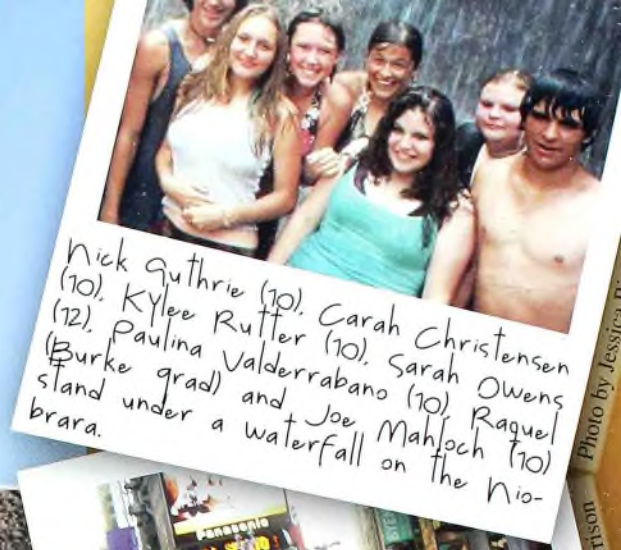 Nick Guthrie (10), Carah Christensen
(10), Kylee Rutter (10), Sarah Owens
(12), Paulina Valderrabano (10), Raquel
(Burke grad) and Joe Mahloch (10)
stand under a waterfall on the Nio-
brara.
Photo by Jessica
Panasonic